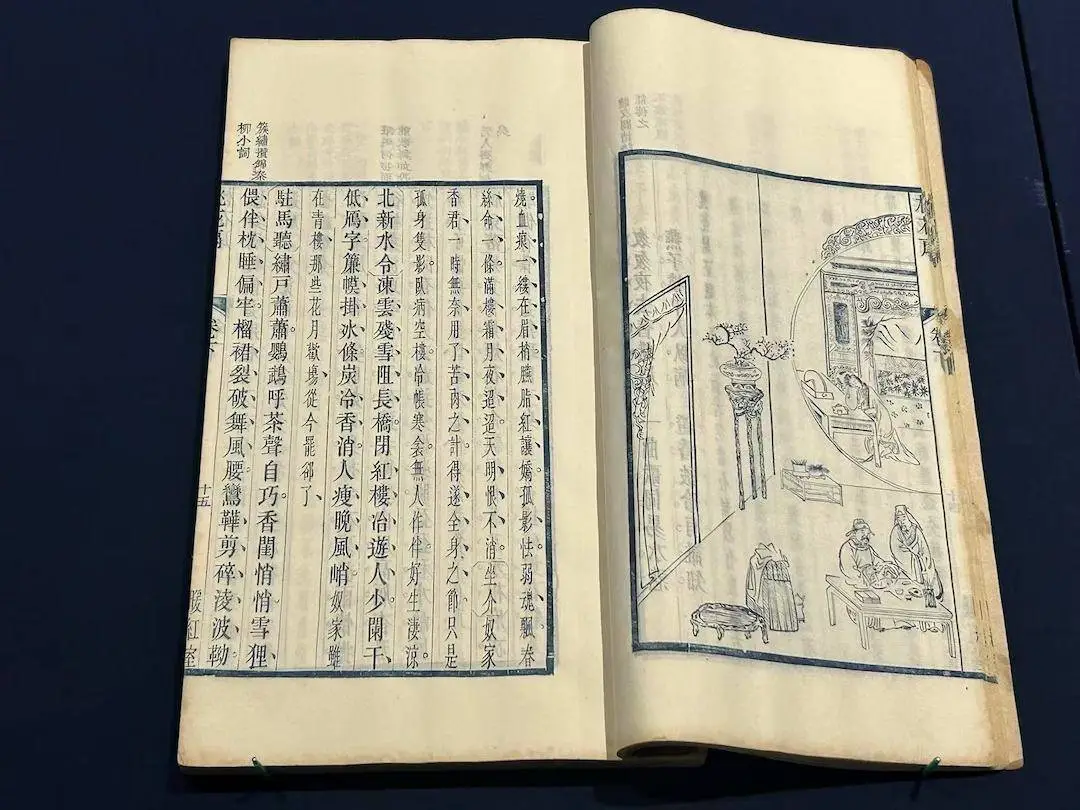 桃花扇
卷下
燒血痕一縷在眉梢臙脂紅讓嬌孤影怯弱魂飄春
絲命一條滿樓霜月夜迢迢天明恨不消坐介奴家
香君一時無奈用了苦肉之計得遂全身之節只是
孤身隻影臥病空樓冷帳寒衾無人作伴好生淒涼
北新水令凍雲殘雪阻長橋閉紅樓冶遊人少闌干
低鴈字簾幙掛冰條炭冷香消人瘦晚風峭奴家雖
在青樓那些花月歡場從今罷卻了
簇繡攢錦秦
柳小詞
駐馬聽繡戶蕭蕭鸚鵡呼茶聲自巧香閨悄悄雪狸
偎伴枕睡偏牢榴裙裂破舞風腰鸞鞾剪碎淩波勒
桃花扇
卷下
十五
暖紅室